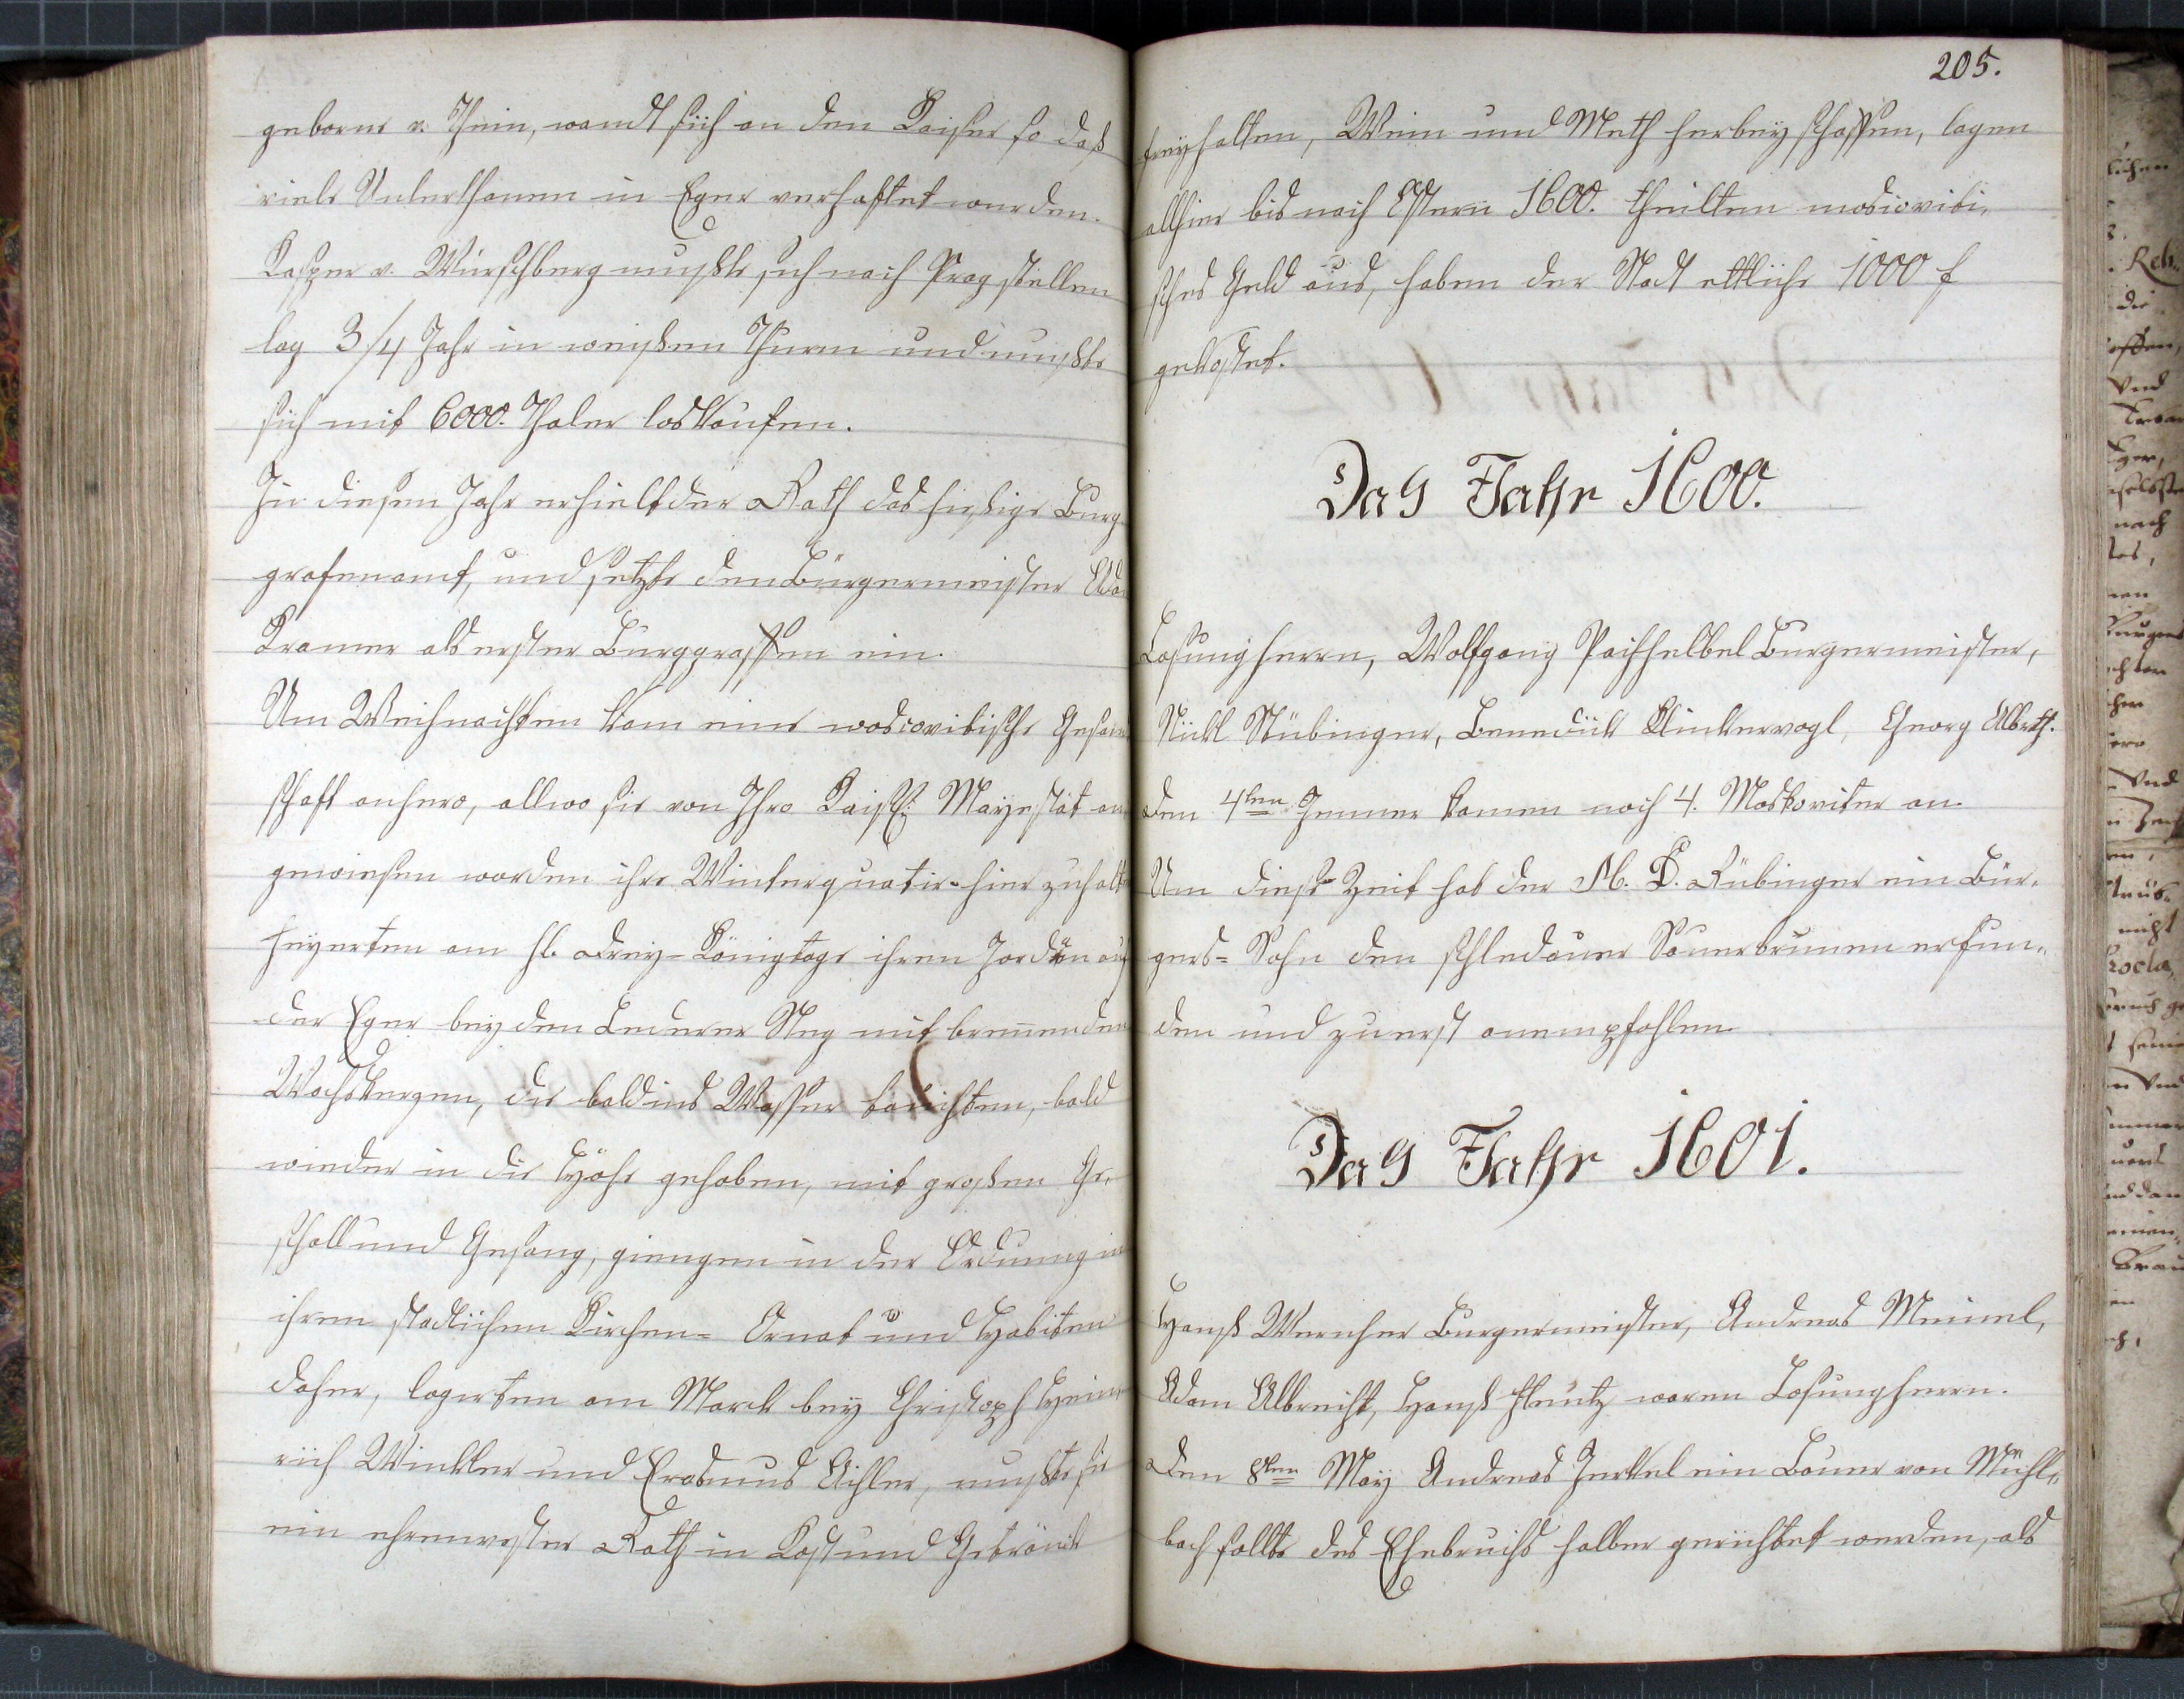 geborne v. Thein, wandt sich an den Kaiser so daß
viele Unterthanen in Eger verhaftet wurden.
Kasper v. Wirschberg mußte sich nach Prag stellen
lag 3/4 Jahr in weißen Thurm und mußte
sich mit 6000. Thaler loskaufen.
In diesen Jahr erhielt der Rath das hießige Burg
grafenamt, und setzte den Bürgermeister Ada
Kramer als erster Burggraffen ein.
Um Weihnachten kam eine moscovitische Gesan
schaft anhero, allwo sie von Ihro Kaiß: Mayestät an
gewiesen worden ihre Winterquatir hier zuhalt
feyerten am hl. Drey-Königtage ihren Jordan auf
der Eger bey den Lederer Steg mit brennenden
Wachskerzen, die bald ins Wasser tauchten, bald
wieder in die Höhe gehoben, mit großen Ge-
schall und Gesang, giengen in der Ordnung in
ihrem statlichen Kirchen- Ornat und Habiten
daher, logirten am Marck bey Christoph Hein
rich Winkler und Erasmus Aichler, mußte sie
ein ehrenvester Rath in Kost und Getränk
205.
freyhalten, Wein und Meth herbey schaffen, lagen
allhier bis nach Ostern 1600. theilten moscoviti-
sches Geld aus, haben der Stadt ettliche 1000 f
gekostet.
Das Jahr 1600.
Losungherrn, Wolfgang Pachhelbel Burgermeister,
Nickl Stübinger, Benedickt Klinkervogl, Georg Albrth.
Den 4ten Jenner kamen noch 4. Moskoviter an.
Um diese Zeit hat der M. D. Rübinger ein Bür-
gers- Sohn den schledauer Sauerbrunen erfun-
den und zuerst anempfohlen.
Das Jahr 1601.
Hanß Wernher Burgermeister, Andreas Meinel,
Adam Albrecht, Hanß Fleutz waren Losungherrn.
Den 8ten May Andreas Zerkel ein Bauer von Mühl-
bach sollte des Ehebruchs halber gerichtet werden, als